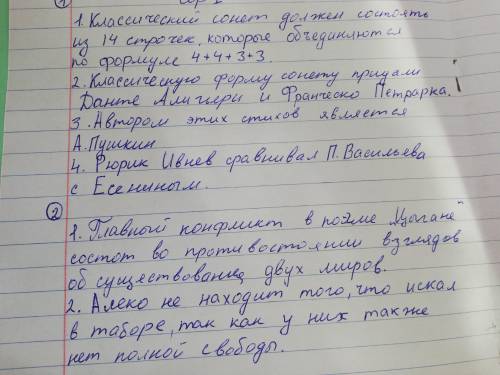 1
1. Классический сонет должен состоять
из 14 строчек, которые объединяются
по формуле 4+4+3+3.
2. Классическую форму сонету придали
Данте Алигьери и Франческо Петрарка.
3. Автором этих стихов является
А. Пушкин
4. Рюрик Ивнев сравнивал П. Васильева
с Есениным.
2
1. Главный конфликт в поэме "Цыгане"
состот во противостоянии взглядов
об существование двух миров.
2. Алеко не находит того, что искал
в таборе, так как у них также
нет полной свободы.